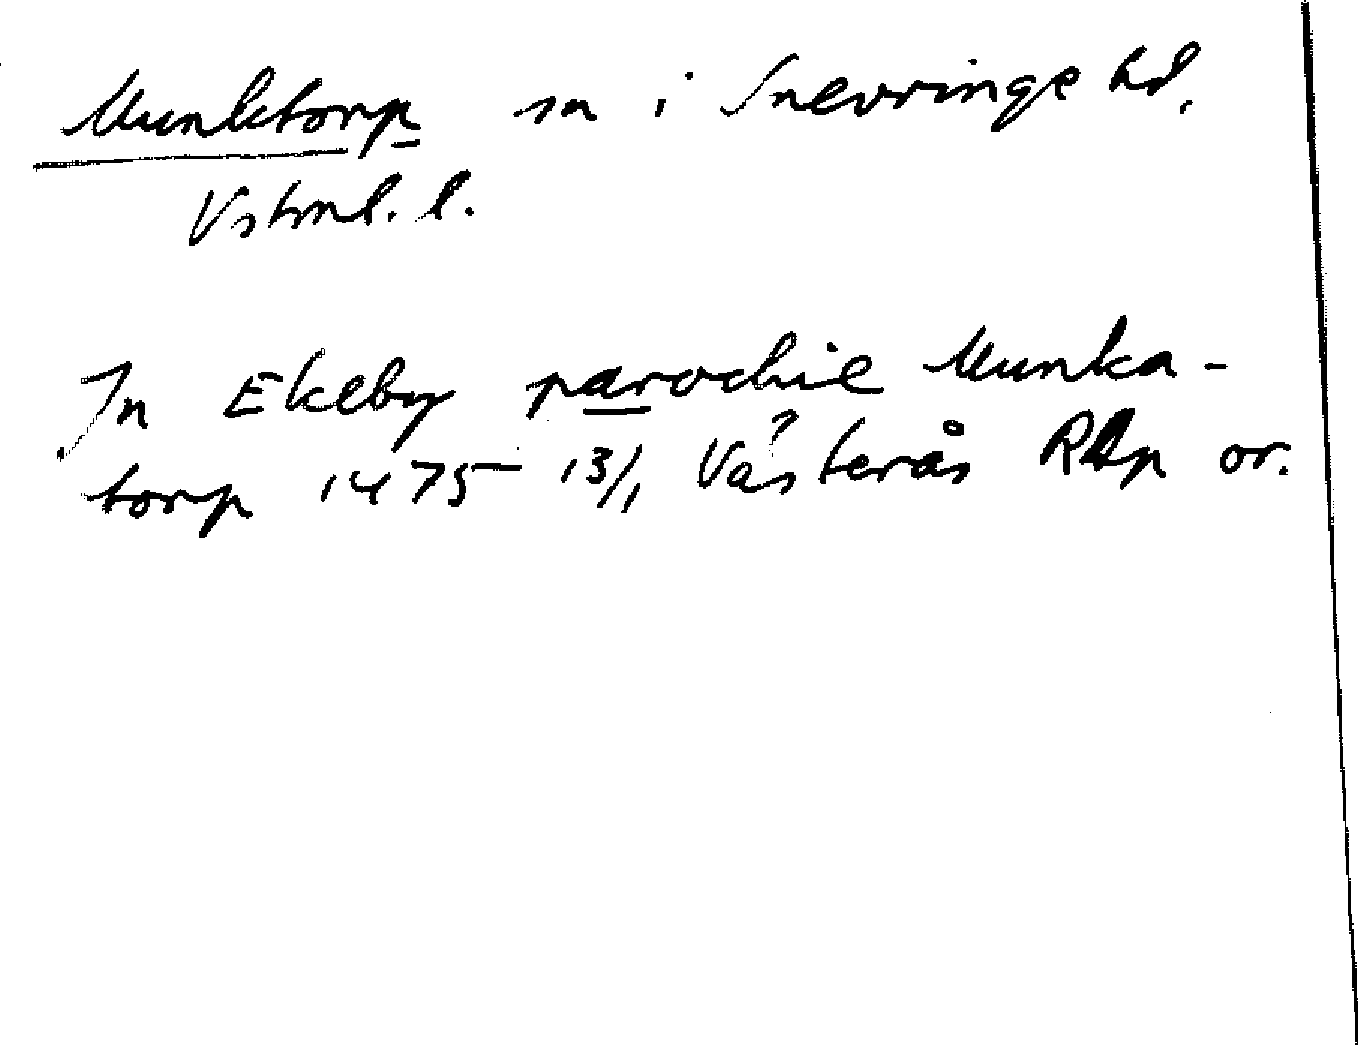 Munktorp sn i Snevringe hd.
Vstml. l.
In Ekeby parochie Munka-
torp 1475 13/1 Västerås RAp or.